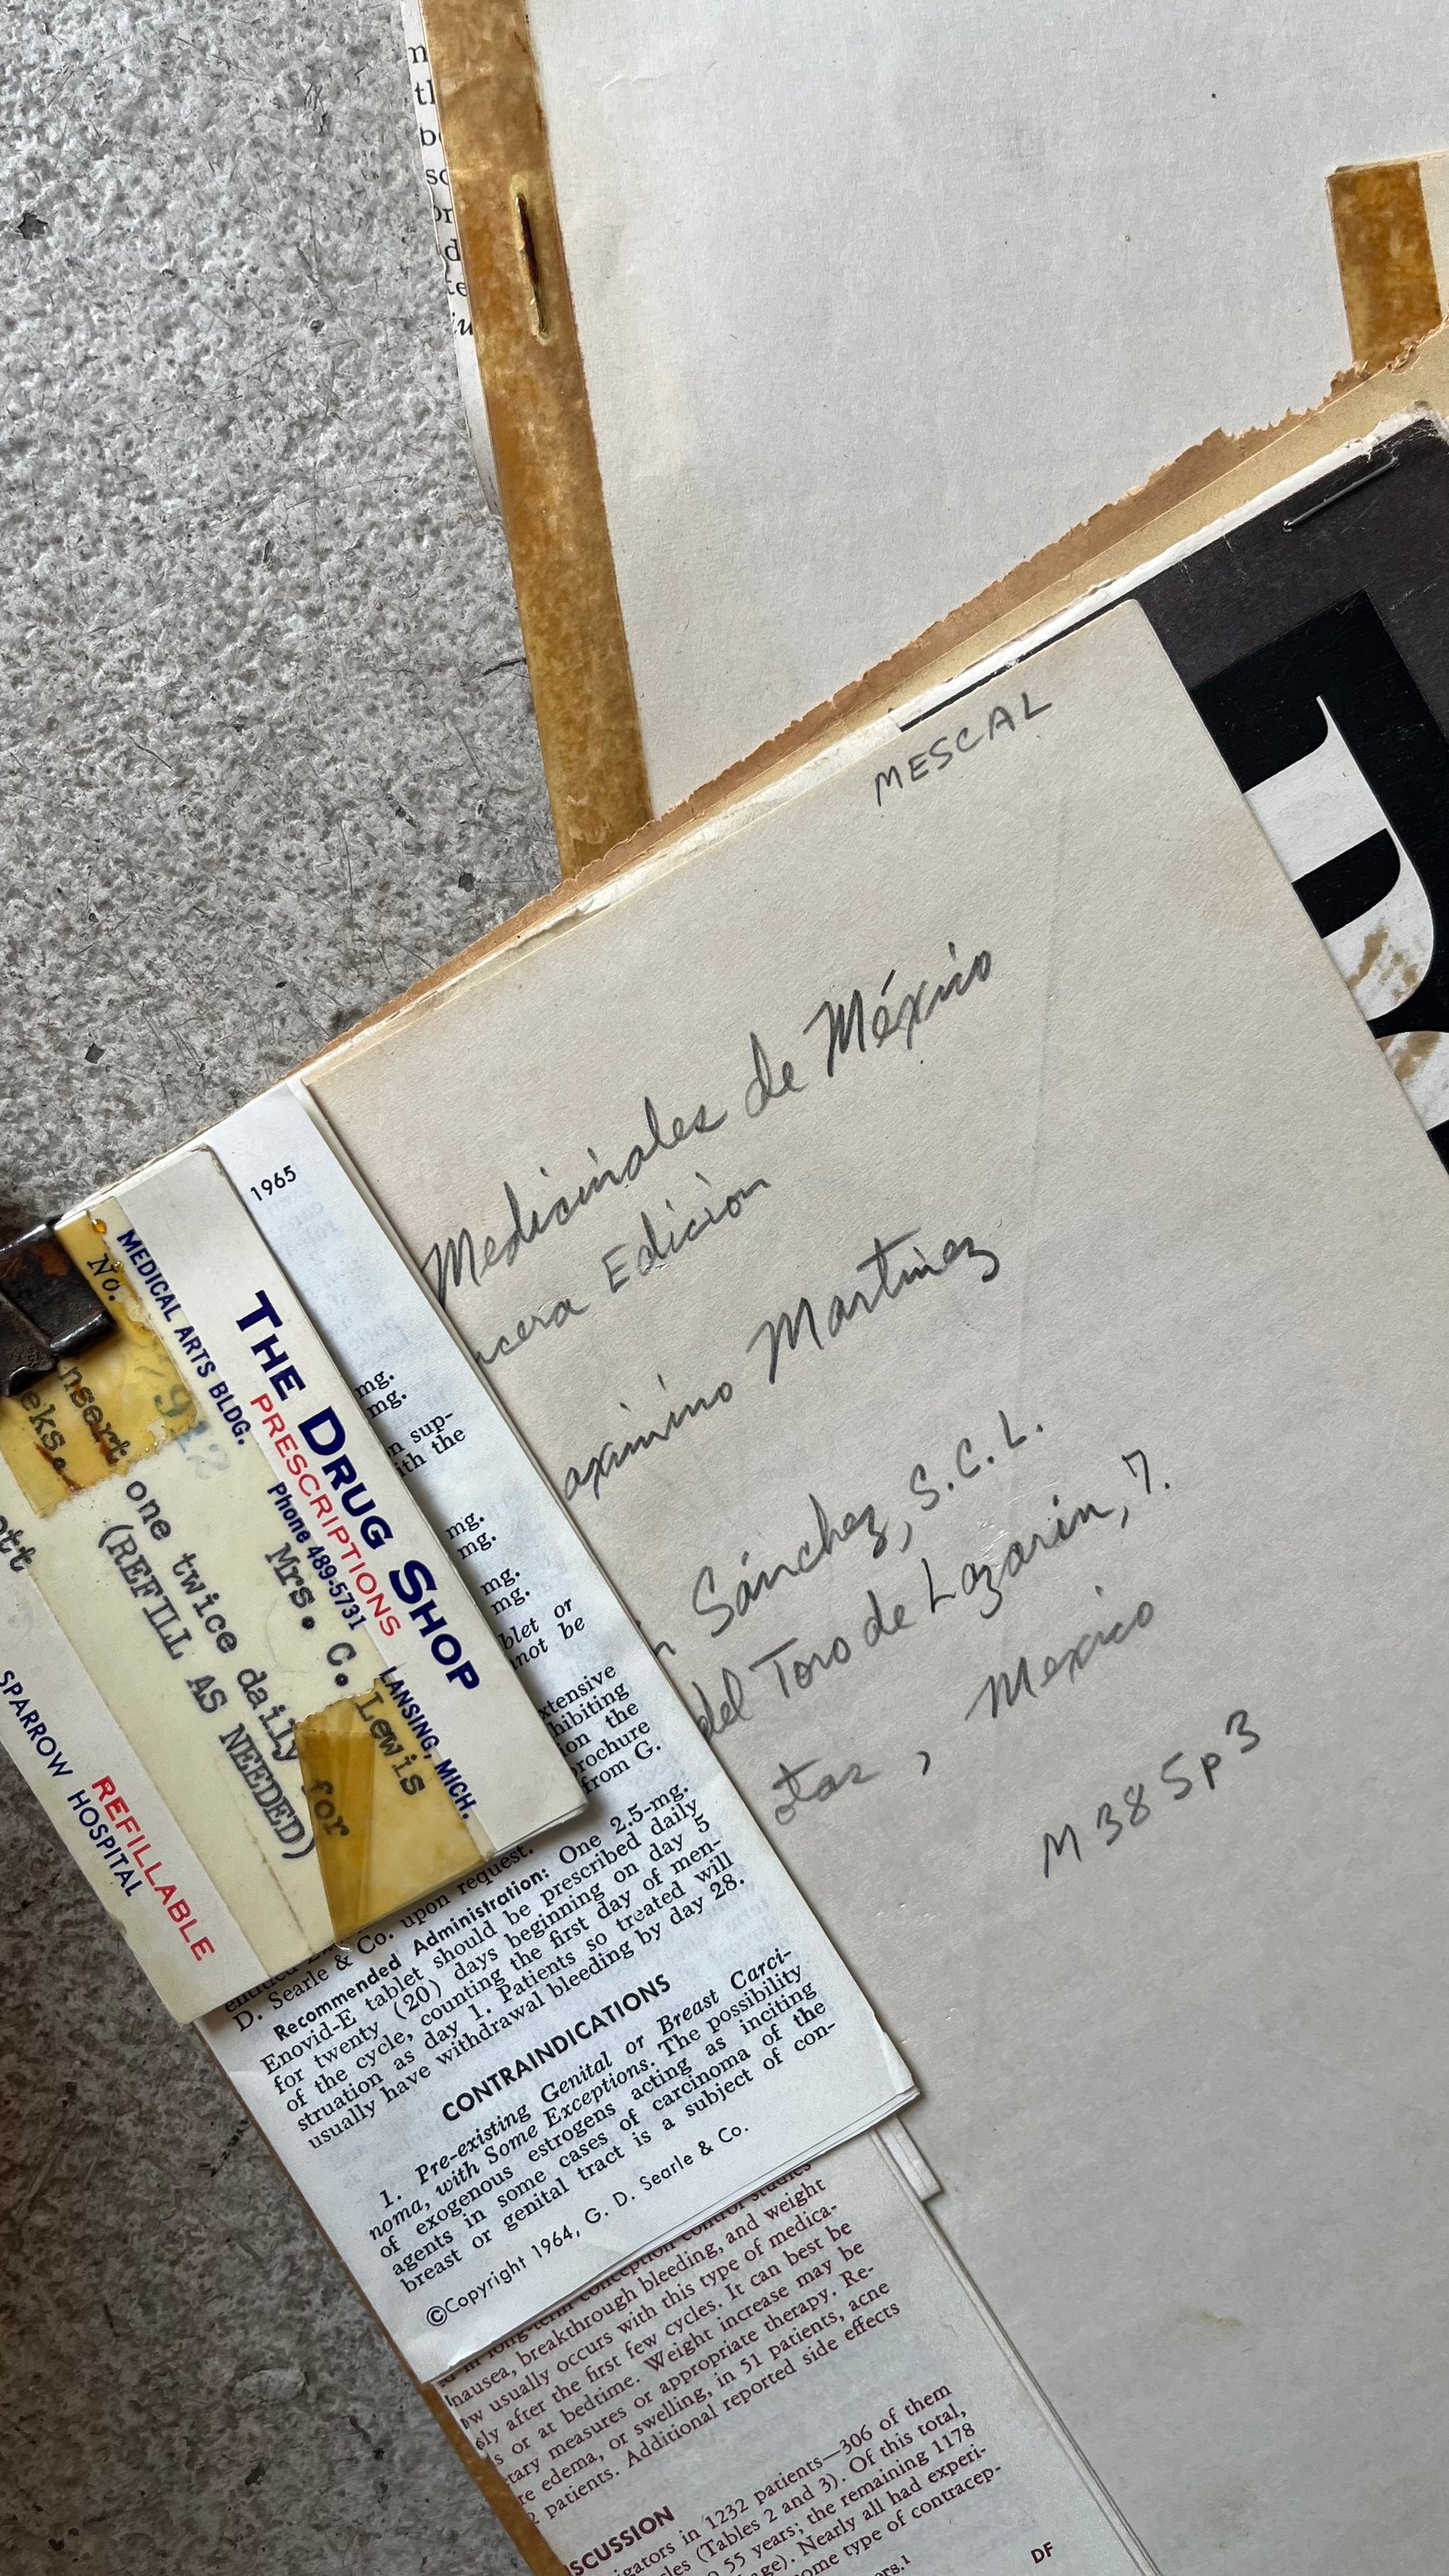 MESCAL
Medicinales de México
Edición
Martínez
Sánchez, S.C.L.
del Toro de Lazarin, 7.
, Mexico
M385p3
1965
THE DRUG SHOP
PRESCRIPTIONS
MEDICAL ARTS BLDG. Phone 489-5731 LANSING, MICH.
No.
Mrs. C. Lewis
one twice daily for
(REFILL AS NEEDED)
REFILLABLE
SPARROW HOSPITAL
mg.
mg.
n sup-
ith the
mg.
mg.
mg.
mg.
blet or
not be
xtensive
hibiting
on the
rochure
from G.
D. Searle & Co. upon request.
Recommended Administration: One 2.5-mg.
Enovid-E tablet should be prescribed daily
for twenty (20) days beginning on day 5
of the cycle, counting the first day of men-
struation as day 1. Patients so treated will
usually have withdrawal bleeding by day 28.
CONTRAINDICATIONS
1. Pre-existing Genital or Breast Carci-
noma, with Some Exceptions. The possibility
of exogenous estrogens acting as inciting
agents in some cases of carcinoma of the
breast or genital tract is a subject of con-
©Copyright 1964, G. D. Searle & Co.
nausea, breakthrough bleeding, and weight
usually occurs with this type of medica-
ly after the first few cycles. It can best be
s or at bedtime. Weight increase may be
tary measures or appropriate therapy. Re-
re edema, or swelling, in 51 patients, acne
2 patients. Additional reported side effects
SCUSSION
igators in 1232 patients—306 of them
les (Tables 2 and 3). Of this total,
55 years; the remaining 1178
ge). Nearly all had experi-
ome type of contracep-
ers.¹
DF